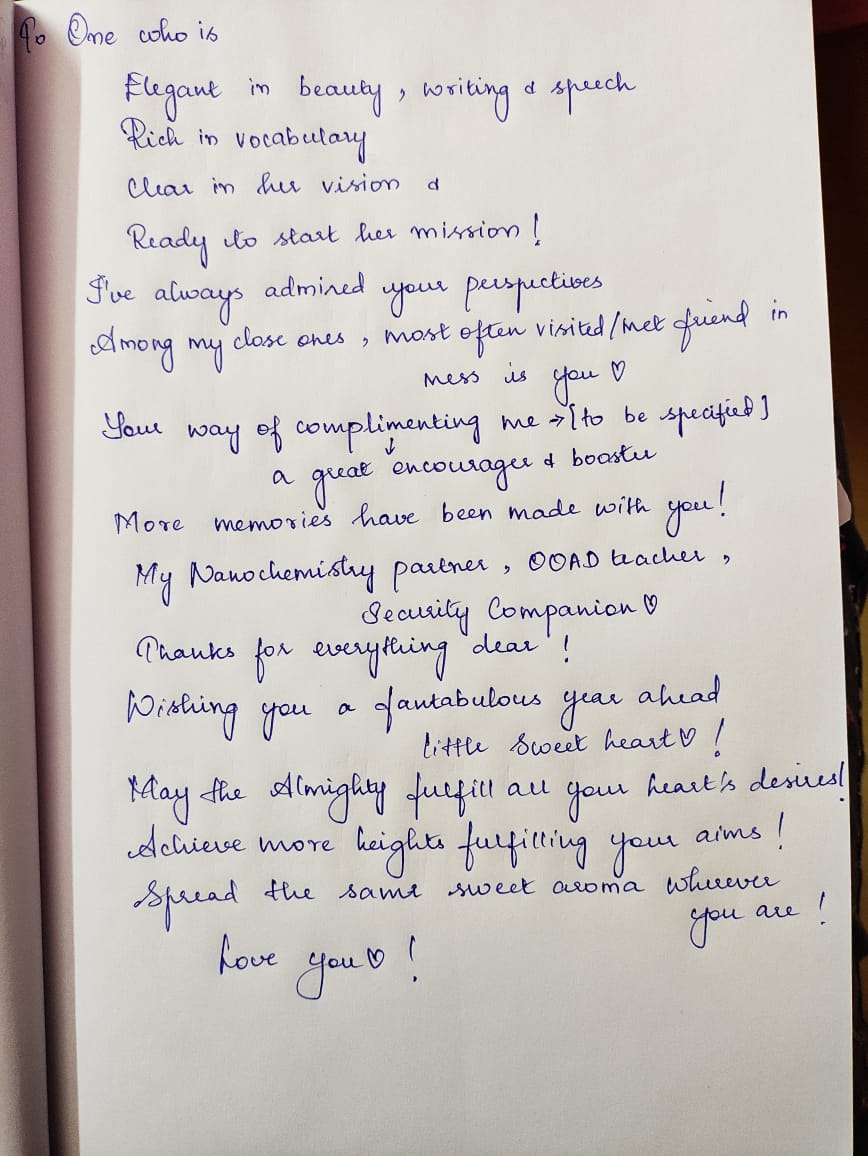 To One who is
Elegant in beauty, writing & speech
Rich in vocabulary
Clear in her vision &
Ready to start her mission!
I've always admired your perspectives
Among my close ones, most often visited/met friend in
mess is you ♡
Your way of complimenting me → [to be specified]
↓
a great encourager & booster
More memories have been made with you!
My Nanochemistry partner, OOAD teacher,
Security Companion ♡
Thanks for everything dear!
Wishing you a fantabulous year ahead
little sweet heart ♡!
May the Almighty fulfill all your heart's desires!
Achieve more heights fulfilling your aims!
Spread the same sweet aroma wherever
you are!
Love you ♡!